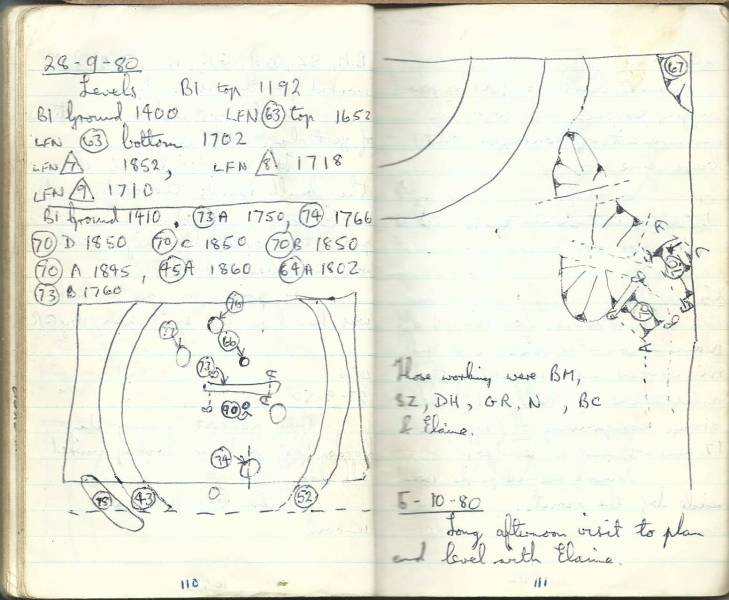 28-9-80
Levels B1 top 1192
B1 ground 1400 LFN 63 top 1652
LFN 63 bottom 1702
LFN 7 1852, LFN 8 1718
LFN 9 1710
B1 ground 1410. 73A 1750, 74 1766
70 D 1850 70 C 1850 70 B 1850
70 A 1845, 45A 1860 64A 1802
73 B 1760
76
77
66
73
A
B
74
43
52
110
67
A
B
Those working were BM,
SZ, DH, GR, N, BC
& Elaine.
5-10-80
Long afternoon visit to plan
and level with Elaine.
111